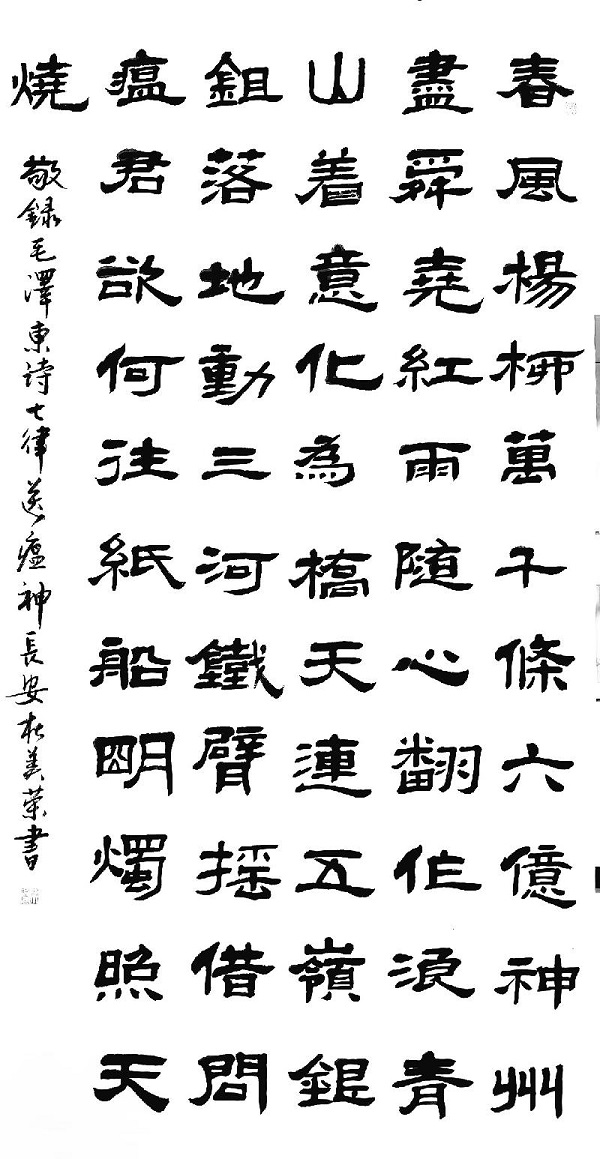 春風楊柳萬千條六億神州
盡舜堯紅雨随心翻作浪青
山着意化為橋天連五嶺銀
鉏落地動三河鐵臂摇借問
瘟君欲何往紙船明燭照天
燒
敬録毛澤東诗七律送瘟神長安杜美荣書